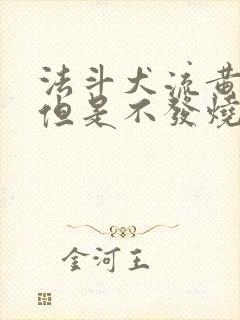 法斗犬流黄
但是不發燒
金河王